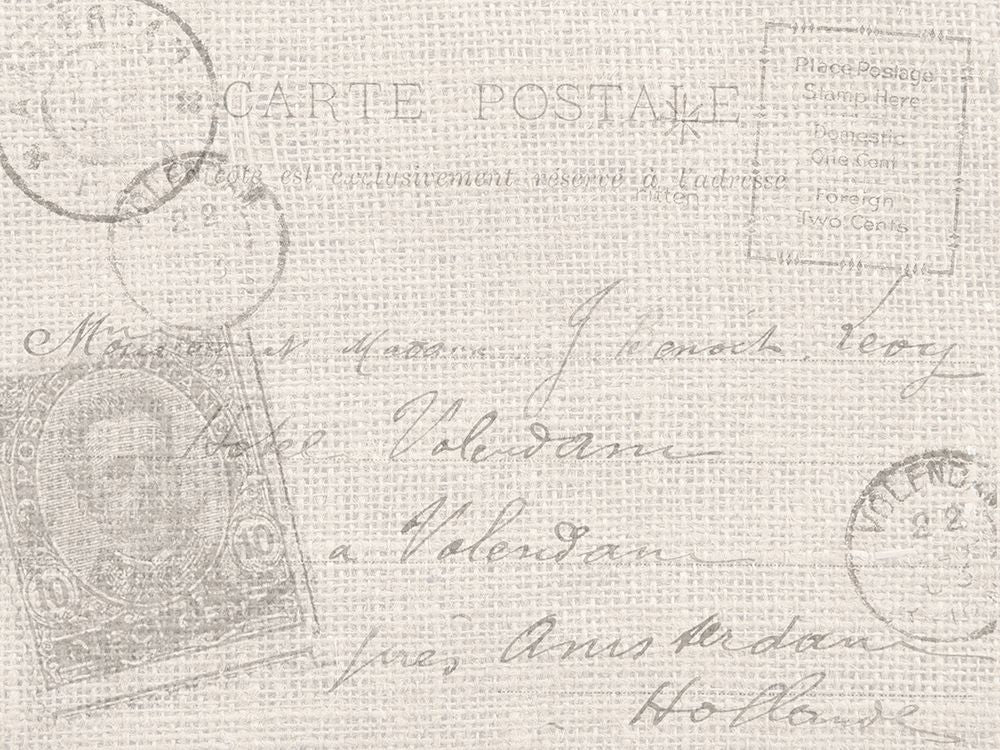 AMSTERDAM
CARTE POSTALE
Place Postage
Stamp Here
Domestic
One Cent
Foreign
Two Cents
Ce côté est exclusivement réservé à l'adresse
VOLENDAM
22
Monsieur et Madame J Benoit Levy
Hotel Volendam
a Volendam
POSTE
10 10
VOLENDAM
22
près Amsterdam
Hollande